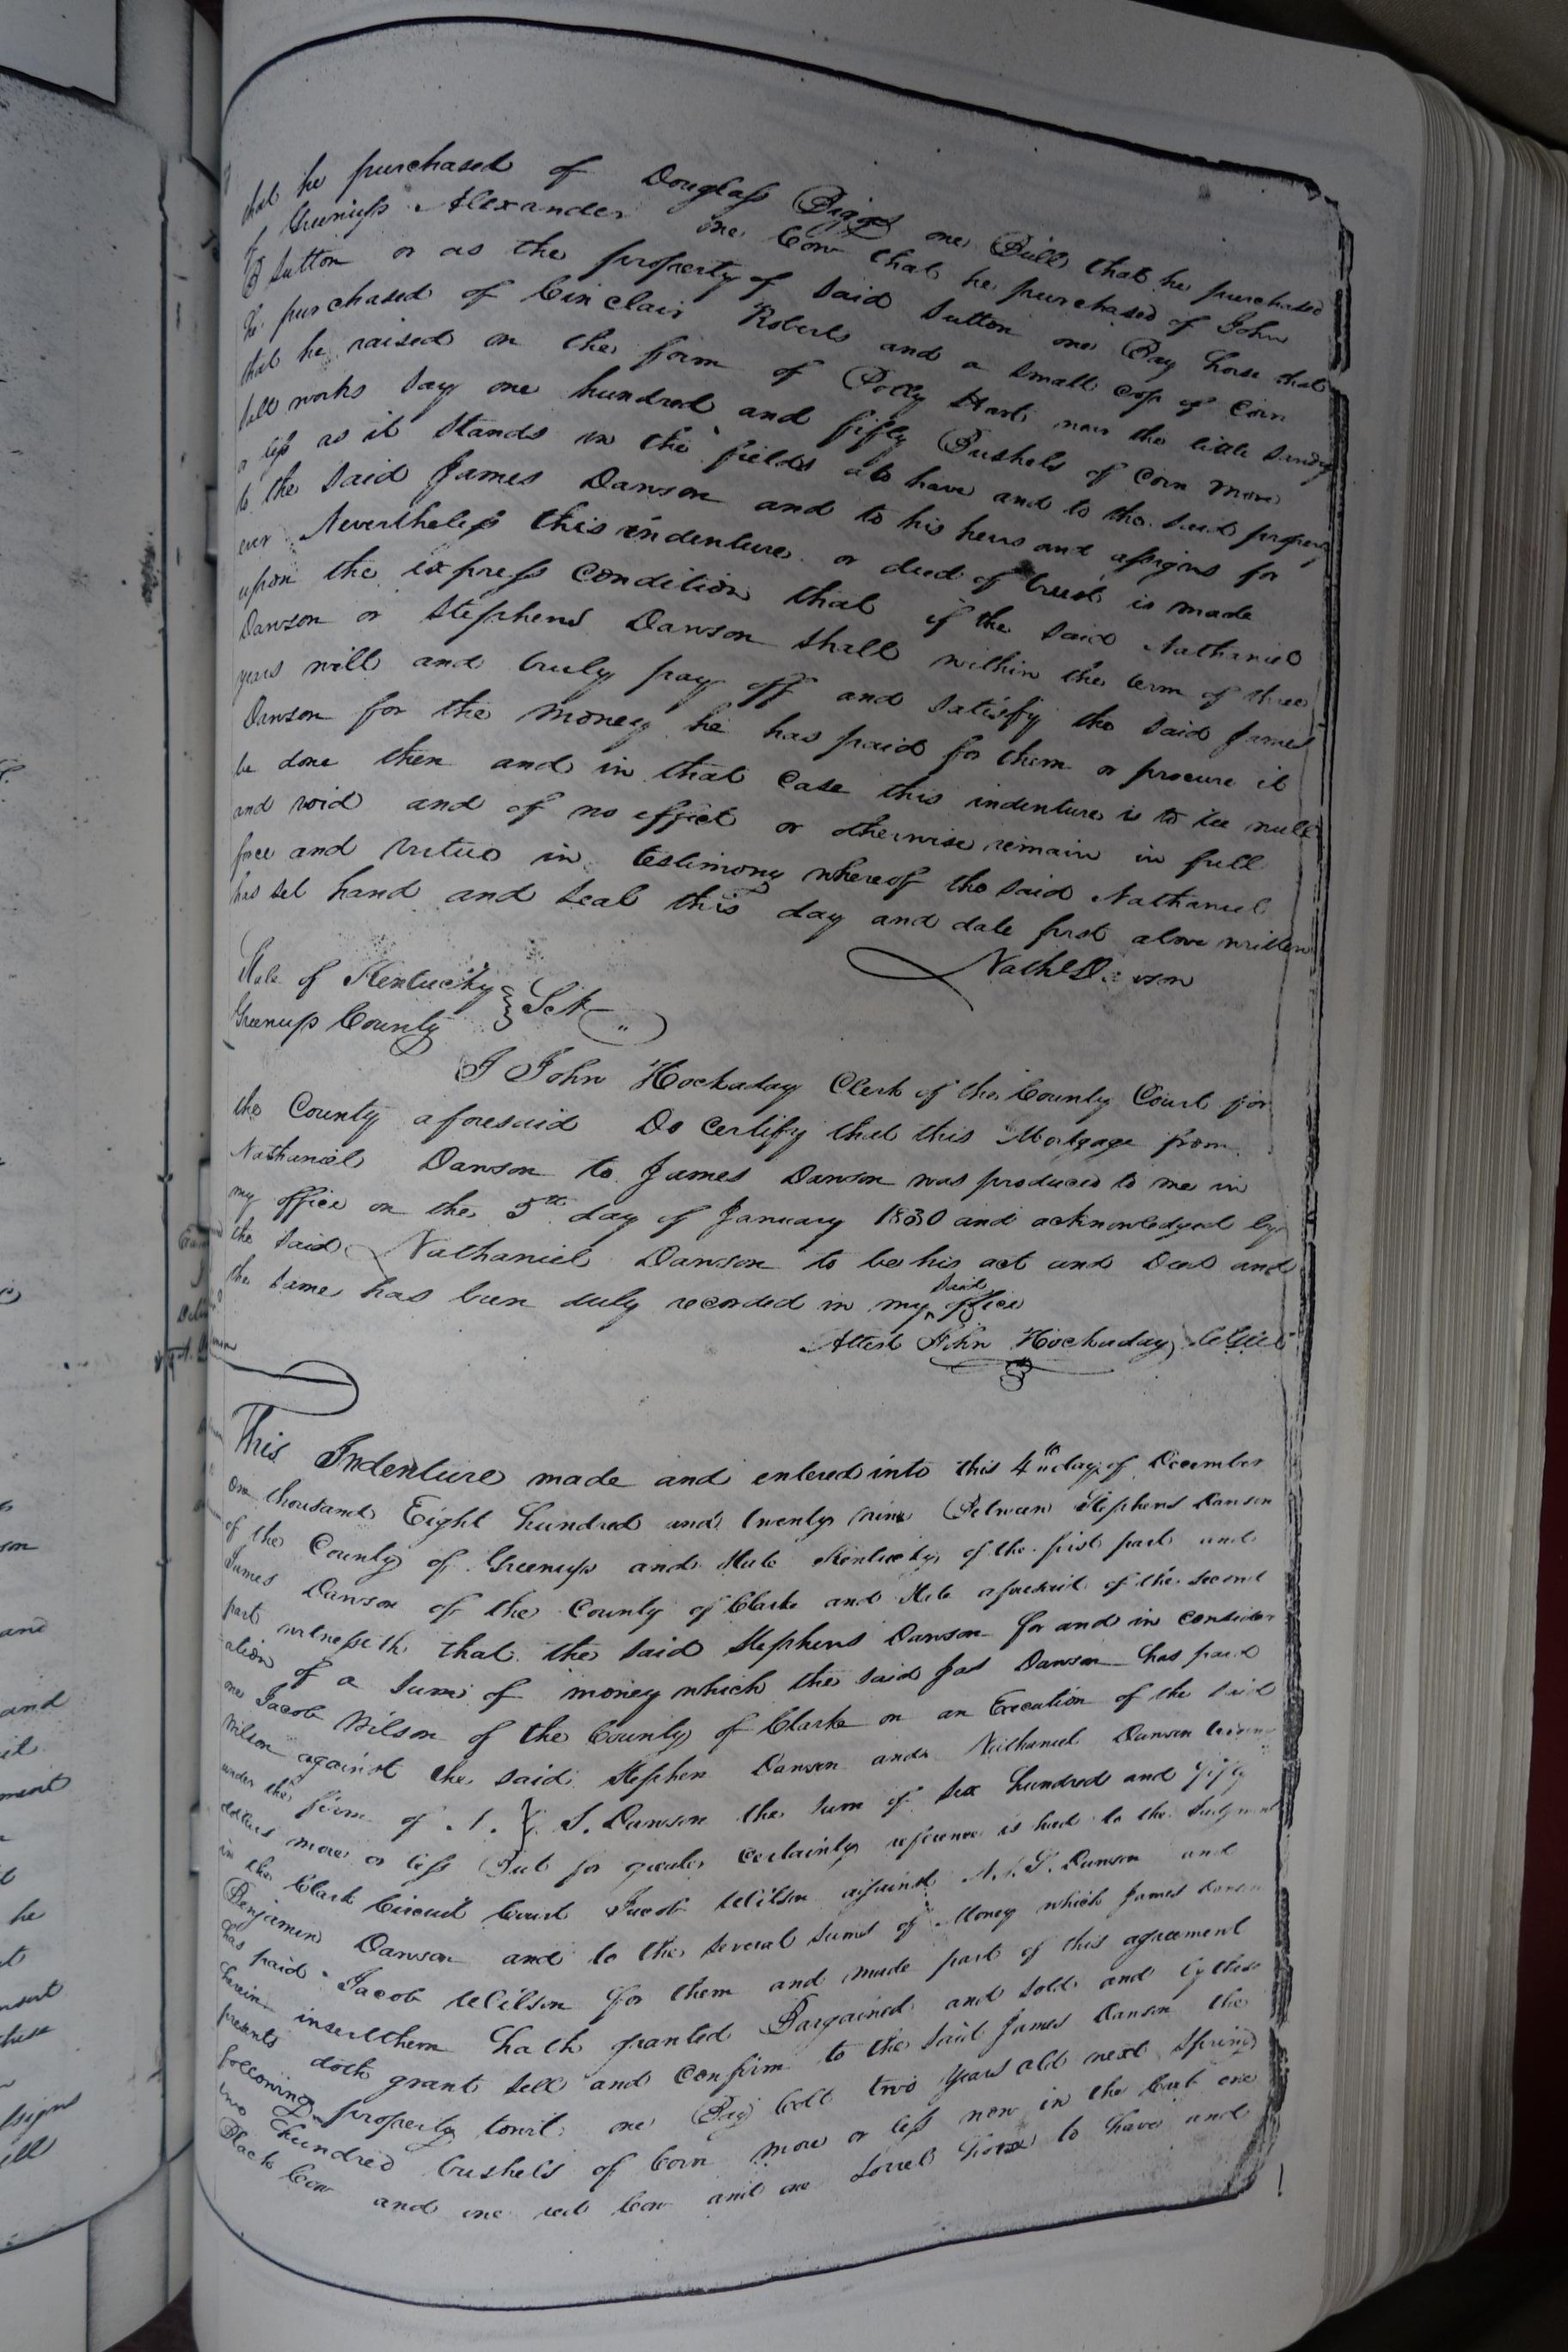 that he purchased of Douglass Biggs one Bull that he purchased
of Greenup Alexander one Cow that he purchased of John
Sutton or as the property of said Sutton one Bay horse that
he purchased of Cinclair Roberts and a small cop of corn
that he raised on the farm of Polly Hart near the little Sandy
Salt works Say one hundred and fifty Bushels of corn more
or less as it Stands in the field to have and to the said property
to the said James Dawson and to his heirs and assigns for
ever Nevertheless this indenture or deed of trust is made
upon the express condition that if the said Nathaniel
Dawson or Stephens Dawson shall within the term of three
years will and truly pay off and satisfy the said James
Dawson for the money he has paid for them or procure it
be done then and in that case this indenture is to be null
and void and of no effect or otherwise remain in full
force and virtue in testimony whereof the said Nathaniel
has set hand and seal this day and date first above written
Nathl Dawson
State of Kentucky
Greenup County } Sct
I John Hockaday Clerk of the County Court for
the County aforesaid Do Certify that this Mortgage from
Nathaniel Dawson to James Dawson was produced to me in
my office on the 5th day of January 1830 and acknowledged by
the said Nathaniel Dawson to be his act and Deed and
the same has been duly recorded in my said office
Attest John Hockaday
This Indenture made and entered into this 4th day of December
One thousand Eight hundred and twenty nine Betwan Stephens Dawson
of the County of Greenup and State Kentucky of the first part and
James Dawson of the County of Clarke and State aforesaid of the second
part witnesseth that the said Stephens Dawson for and in consider
ation of a sum of money which the said Jas Dawson has paid
one Jacob Wilson of the County of Clarke on an Execution of the said
Wilson against the said Stephen Dawson and Nathaniel Dawson
under the firm of N. & S. Dawson the sum of six hundred and fifty
dollars more or less But for greater certainty reference is had to the Judgment
in the Clark Circuit Court Jacob Wilson against N. & S. Dawson and
Benjamin Dawson and to the several sums of Money which James Dawson
has paid Jacob Wilson for them and made part of this agreement
therein insert them hath granted Bargained and sold and by these
presents doth grant sell and confirm to the said James Dawson the
following property towit one Bay Colt two years old next Spring
two hundred bushels of Corn more or less now in the Crib one
Black Cow and one red Cow and one sorrel horse to have and